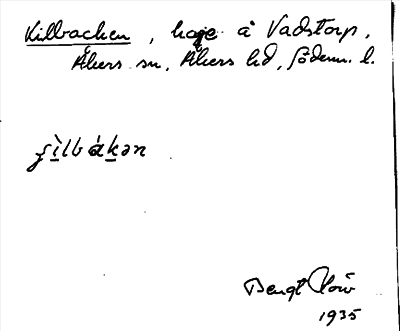 Kilbacken, hage å Vadstorp,
Åkers sn, Åkers hd, Söderm. l.
ʃìlbákən
Bengt Löw
1935